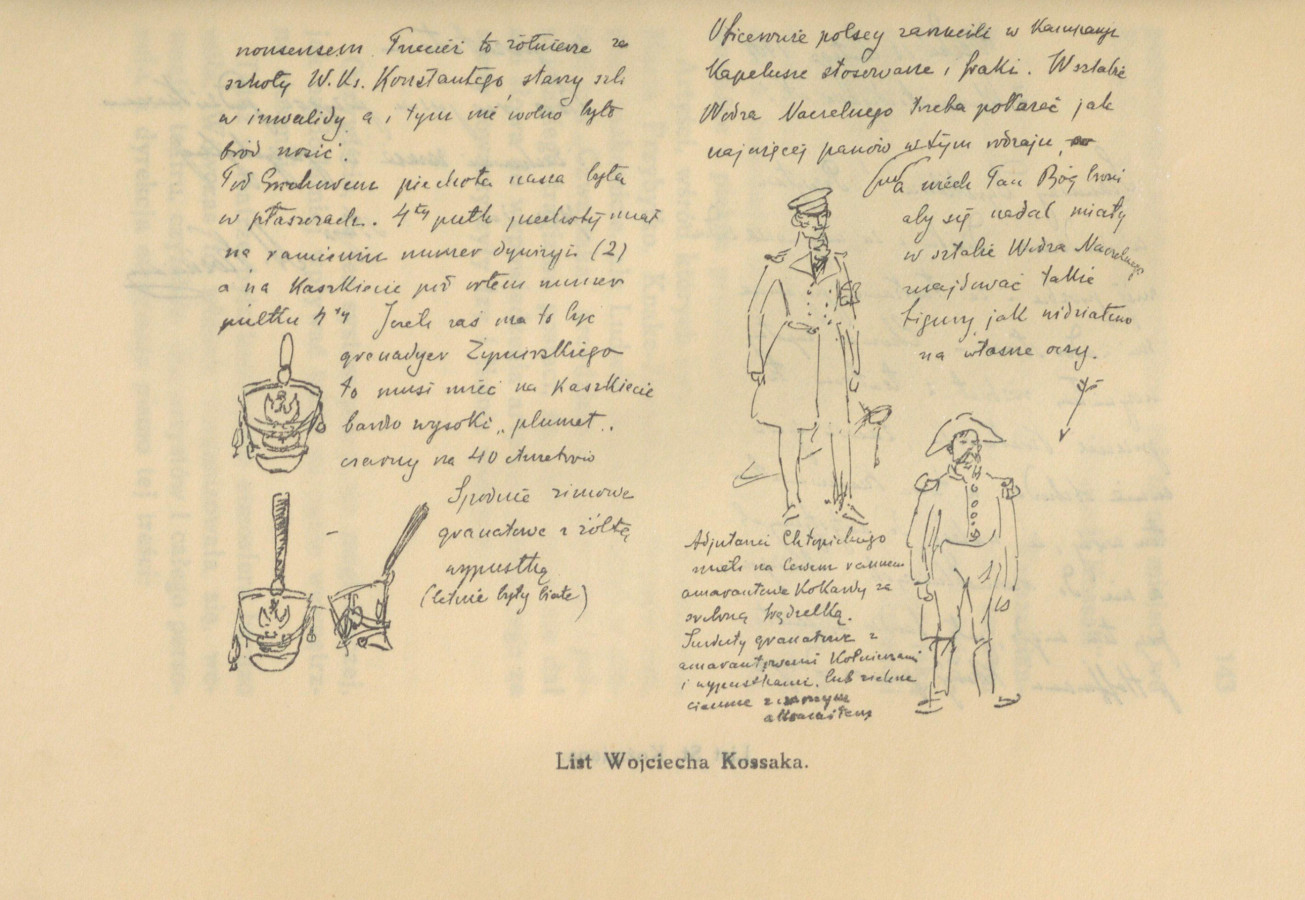 nonsensem. Przecież to żołnierze ze
szkoły W. Ks. Konstantego, starzy szli
w inwalidy, a i tym nie wolno było
bród nosić.
Pod Grochowem piechota nasza była
w płaszczach. 4ty pułk piechoty miał
na ramieniu numer dywizyi (2)
a na Kaszkiecie pod orłem numer
pułku 4ty Jeżeli zaś ma to być
grenadyer Żymirskiego
to musi mieć na Kaszkiecie
bardzo wysoki „plumet„
czarny na 40 ctmetrów
Spodnie zimowe
granatowe z żółtą
wypustką
(letnie były białe)
Oficerowie polscy zarzucili w Kampanji
Kapelusze stosowane i fraki. W sztabie
Wodza Naczelnego trzeba pokazać jak
najwięcej panów w tym rodzaju,
a niech Pan Bóg broni
aby się nadal miały
w sztabie Wodza Naczelnego
znajdować takie
figury, jak widziałem
na własne oczy.
Adjutanci Chłopickiego
mieli na lewem ramieniu
amarantowe Kokardy ze
srebrną frędzelką.
Surduty granatowe z
amarantowemi Kołnierzami
i wypustkami, lub zielone
ciemne z czarnym
aksamitem
List Wojciecha Kossaka.